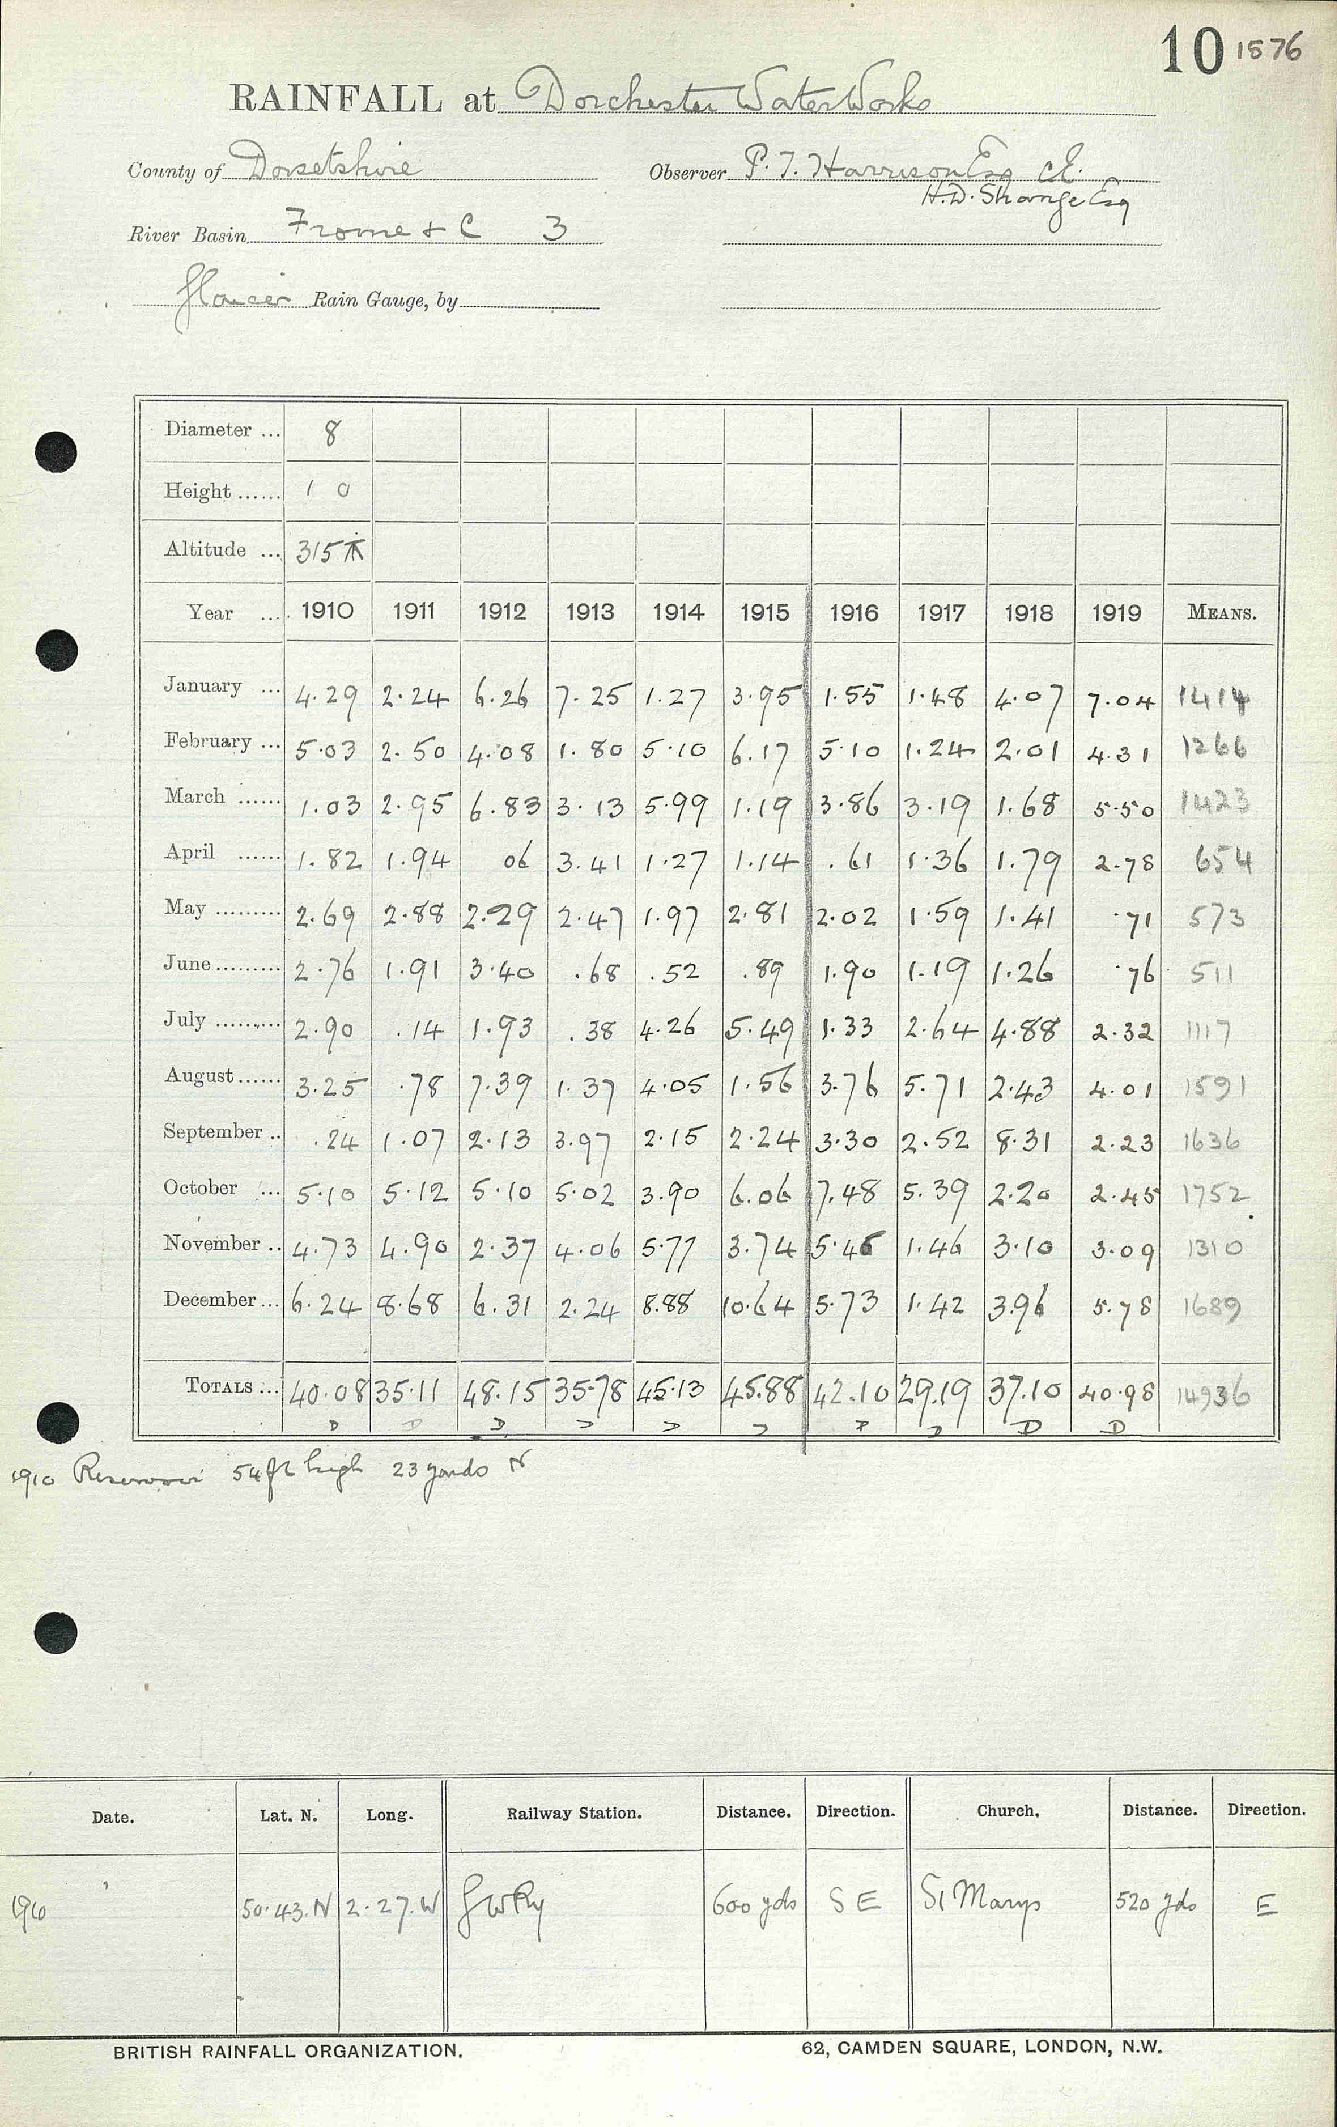 10 1576
RAINFALL at Dorchester Water Works
County of Dorsetshire Observer P. T. Harrison Esq CE.
H.D. Strange Esq
River Basin Frome & C 3
Rain Gauge, by
Diameter ... 8
Height ...... 1 0
Altitude ... 315
Year ... 1910 1911 1912 1913 1914 1915 1916 1917 1918 1919 MEANS.
January ... 4.29 2.24 6.26 7.25 1.27 3.95 1.55 1.48 4.07 7.04 1414
February ... 5.03 2.50 4.08 1.80 5.10 6.17 5.10 1.24 2.01 4.31 1266
March ...... 1.03 2.95 6.83 3.13 5.99 1.19 3.86 3.19 1.68 5.50 1423
April ...... 1.82 1.94 06 3.41 1.27 1.14 .61 1.36 1.79 2.78 654
May ......... 2.69 2.88 2.29 2.47 1.97 2.81 2.02 1.59 1.41 .71 573
June ......... 2.76 1.91 3.40 .68 .52 .89 1.90 1.19 1.26 .76 511
July ......... 2.90 .14 1.93 .38 4.26 5.49 1.33 2.64 4.88 2.32 1117
August ...... 3.25 .78 7.39 1.37 4.05 1.56 3.76 5.71 2.43 4.01 1591
September .. .24 1.07 2.13 3.97 2.15 2.24 3.30 2.52 8.31 2.23 1636
October ... 5.10 5.12 5.10 5.02 3.90 6.06 7.48 5.39 2.20 2.45 1752
November .. 4.73 4.90 2.37 4.06 5.77 3.74 5.46 1.46 3.10 3.09 1310
December ... 6.24 8.68 6.31 2.24 8.88 10.64 5.73 1.42 3.96 5.78 1689
TOTALS ... 40.08 35.11 48.15 35.78 45.13 45.88 42.10 29.19 37.10 40.98 14936
D D D D D D D D D D
1910 Reservoir 54 ft high 23 yards N
Date. Lat. N. Long. Railway Station. Distance. Direction. Church. Distance. Direction.
1910 50.43.N 2.27.W GWRy 600 yds S E St Marys 520 yds E
BRITISH RAINFALL ORGANIZATION. 62, CAMDEN SQUARE, LONDON, N.W.